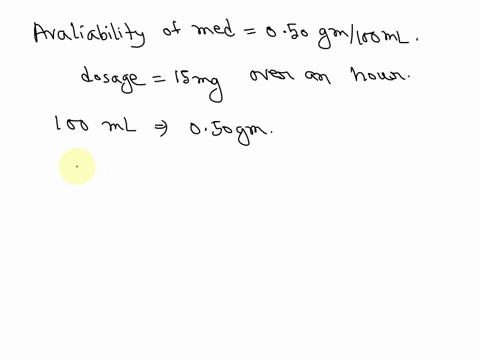 Avaliability of med = 0.50 gm/100mL.
dosage = 15mg over an hour.
100 mL ⇒ 0.50gm.